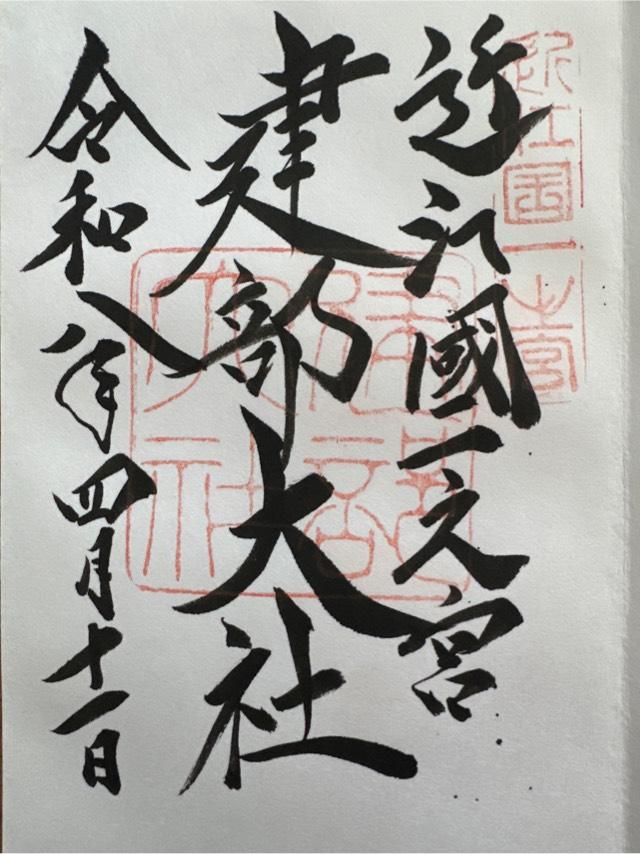 近江國一之宮
近江国一之宮
建部大社
建部大社
令和八年四月十一日